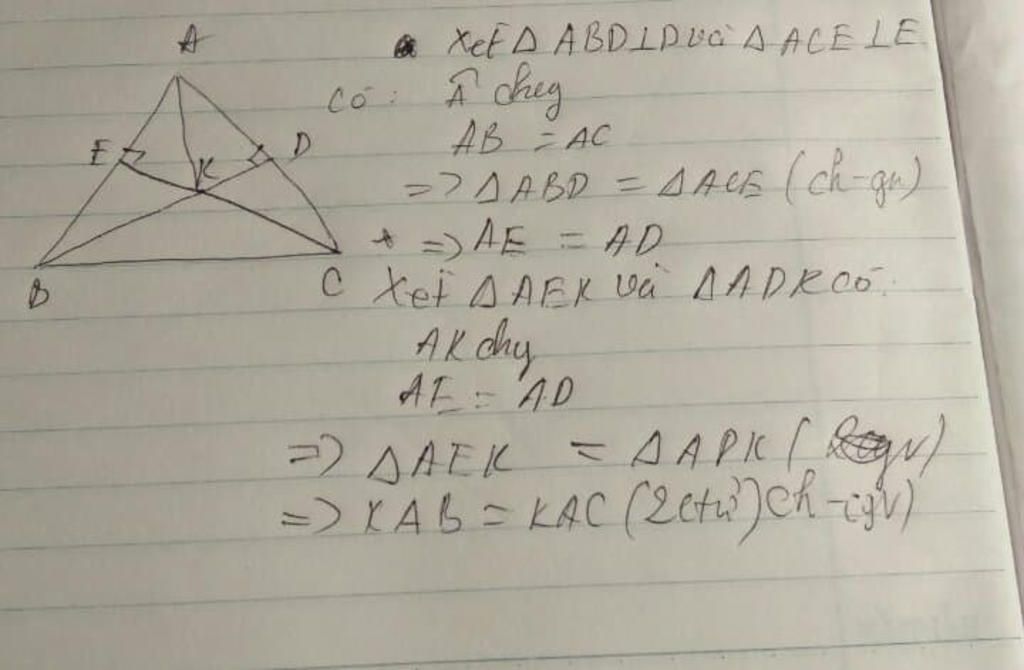 A
E
D
K
B
C
Xét Δ ABD⊥D và Δ ACE⊥E
Có: Â chug
AB = AC
=> ΔABD = ΔACE (ch-gn)
* => AE = AD
Xét ΔAEK và ΔADK có:
AK chug
AE = AD
=> ΔAEK = ΔADK (
=> KAB = KAC (2ctứ) ch-cgv)